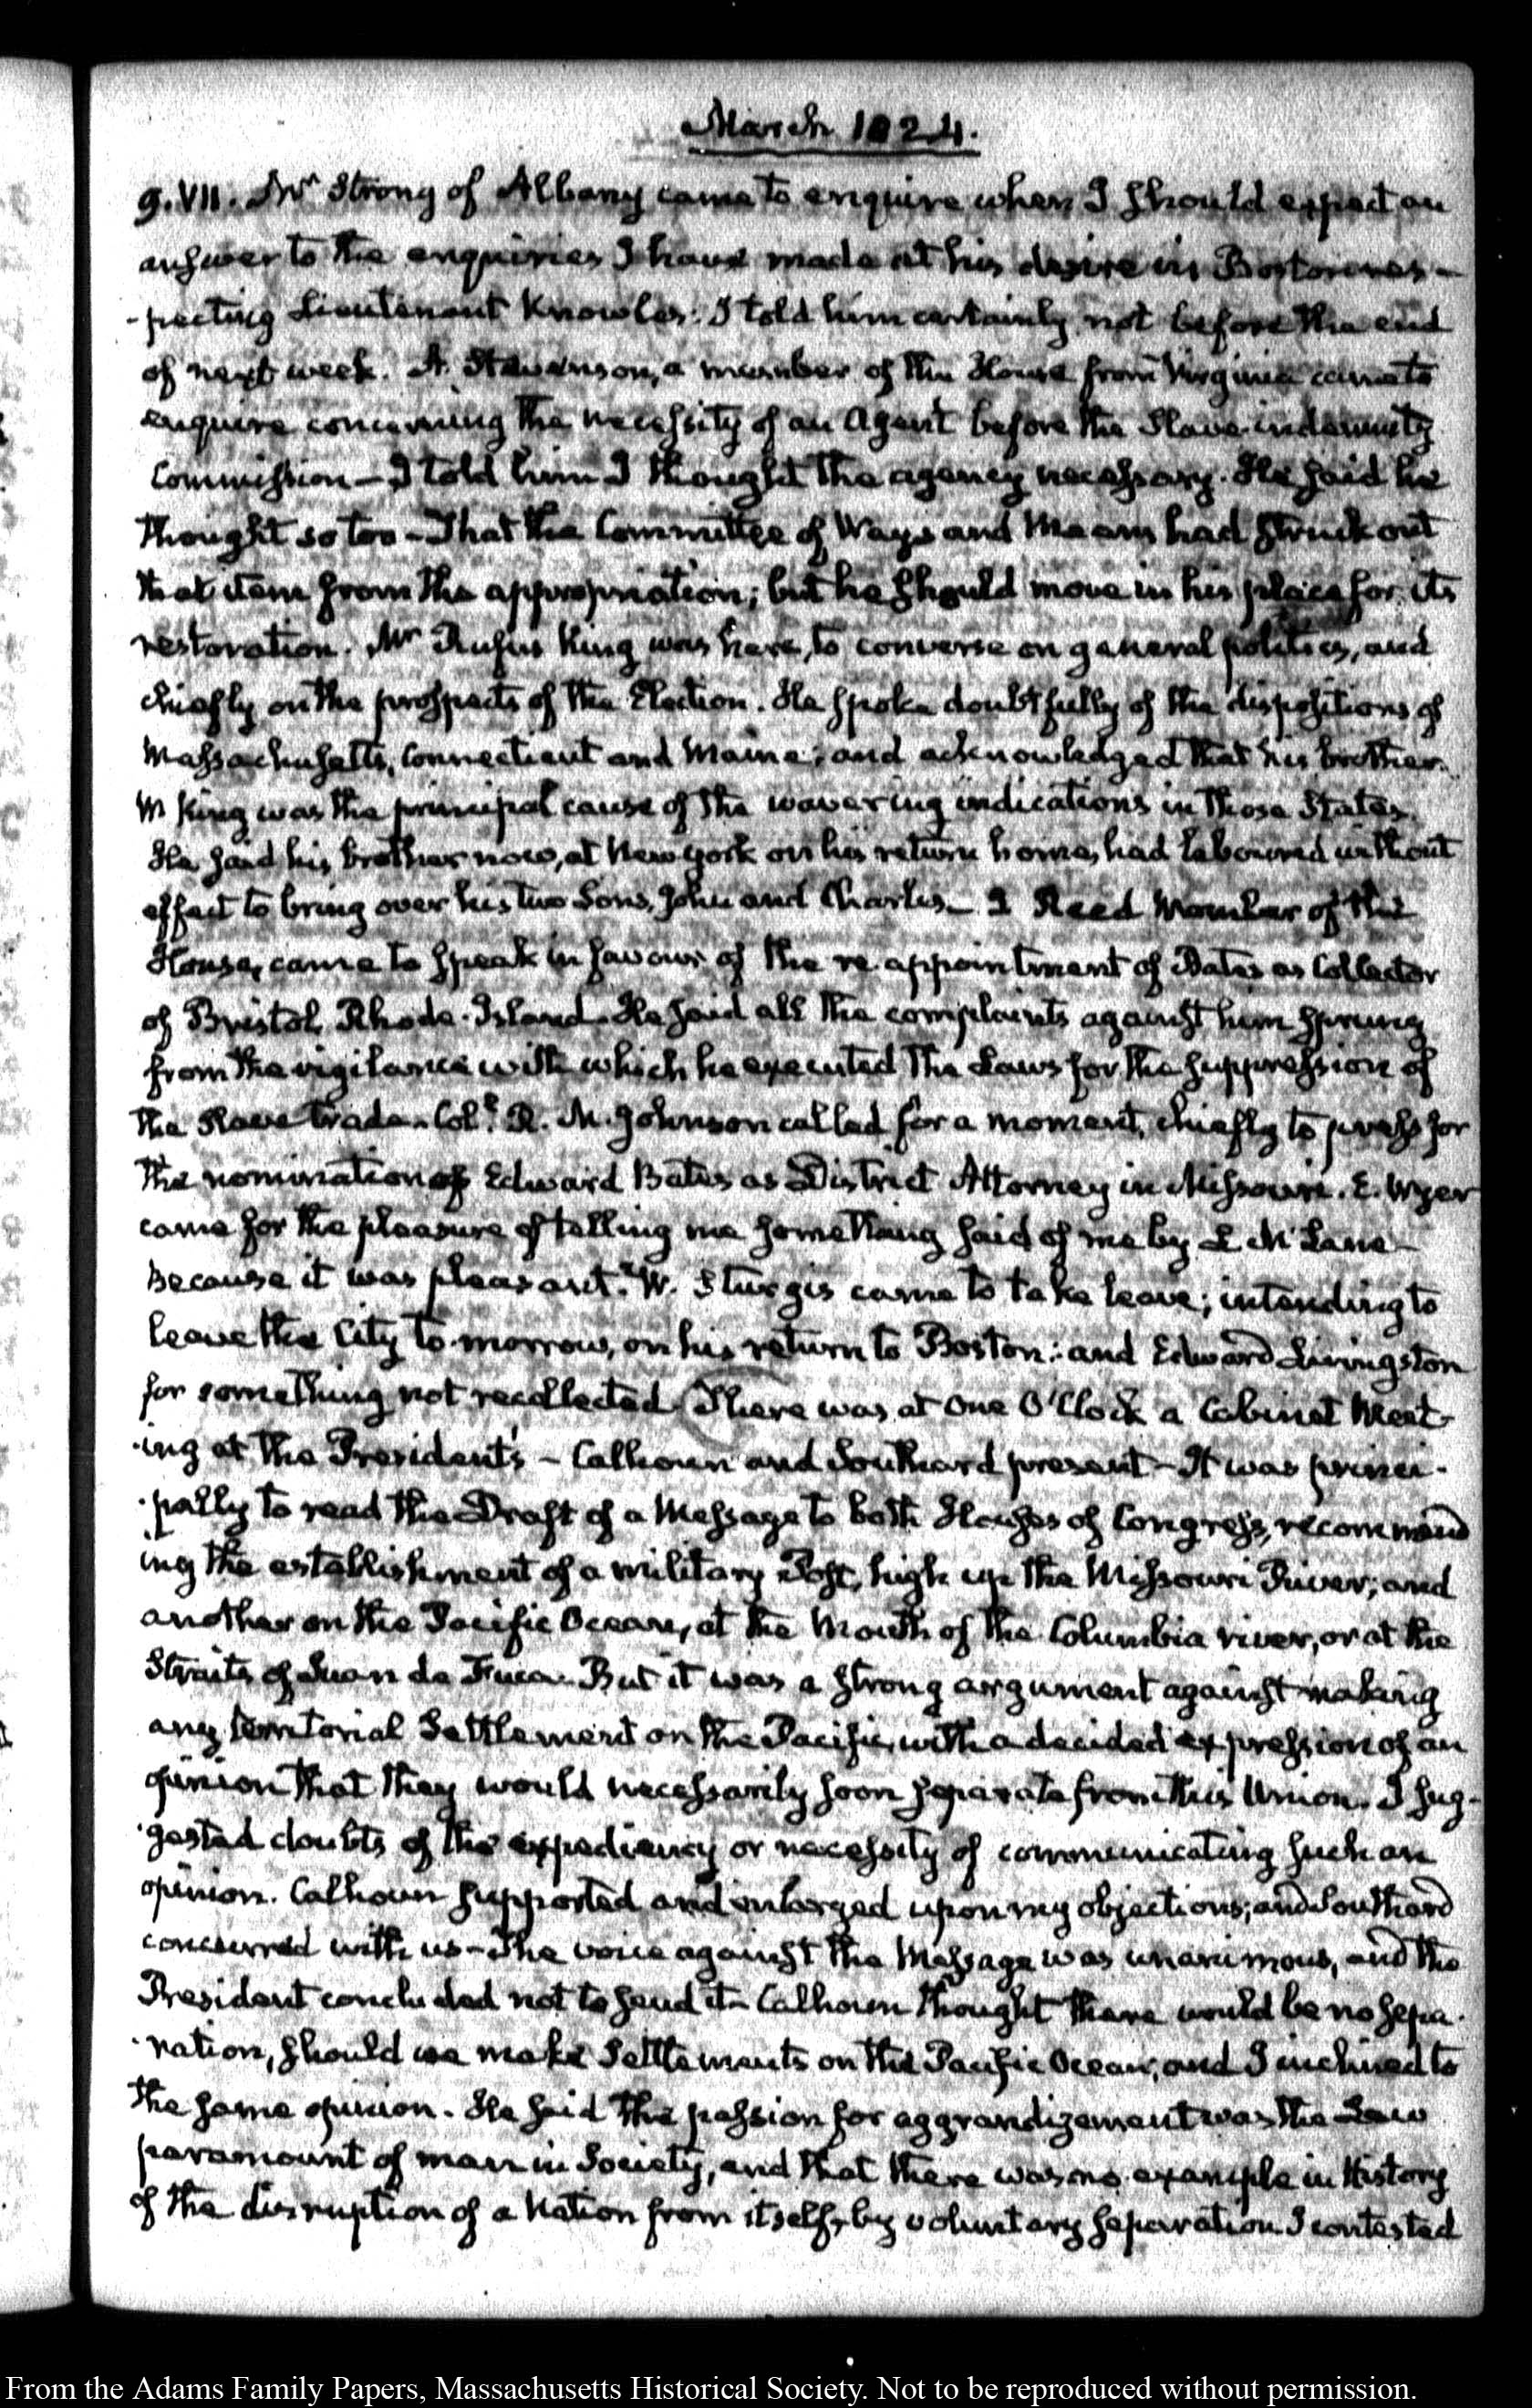 March 1824.
9. VII. Mr Strong of Albany came to enquire when I should expect an
answer to the enquiries I have made at his desire in Boston res-
-pecting Lieutenant Knowles: I told him certainly not before the end
of next week. A. Stevenson, a member of the House from Virginia came to
enquire concerning the necessity of an Agent before the Slave-indemnity
Commission — I told him I thought the agency necessary. He said he
thought so too — That the Committee of Ways and Means had struck out
that item from the appropriation; but he should move in his place for its
restoration. Mr Rufus King was here, to converse on general politics, and
chiefly on the prospects of the Election. He spoke doubtfully of the dispositions of
Massachusetts, Connecticut and Maine; and acknowledged that his brother
W King was the principal cause of the wavering indications in those States.
He said his brother now, at New York on his return home, had laboured without
effect to bring over his two Sons, John and Charles — J Reed Member of the
House, came to speak in favour of the re-appointment of Bates as Collector
of Bristol, Rhode-Island. He said all the complaints against him sprung
from the vigilance with which he executed the Laws for the suppression of
the Slave trade. Coll. R. M. Johnson called for a moment, chiefly to press for
the nomination of Edward Bates as District Attorney in Missouri. E. Wyer
came for the pleasure of telling me something said of me by L McLane —
because it was pleasant. W. Sturgis came to take leave; intending to
leave the City to-morrow, on his return to Boston: and Edward Livingston
for something not recollected. There was at One O'Clock a Cabinet Meet-
-ing at the President's — Calhoun and Southard present — It was princi-
-pally to read the Draft of a Message to both Houses of Congress, recommend
ing the establishment of a military Post, high up the Missouri River; and
another on the Pacific Ocean, at the Mouth of the Columbia river, or at the
Straits of Juan de Fuca. But it was a strong argument against making
any territorial Settlement on the Pacific, with a decided expression of an
opinion that they would necessarily soon separate from this Union. I sug-
-gested doubts of the expediency or necessity of communicating such an
opinion. Calhoun supported and enlarged upon my objections; and Southard
concurred with us — The voice against the Message was unanimous, and the
President concluded not to send it — Calhoun thought there would be no sepa-
-ration, should we make Settlements on the Pacific Ocean; and I inclined to
the same opinion. He said the passion for aggrandizement was the Law
paramount of man in Society, and that there was no example in History
of the disruption of a Nation from itself, by voluntary separation. I contested
From the Adams Family Papers, Massachusetts Historical Society. Not to be reproduced without permission.